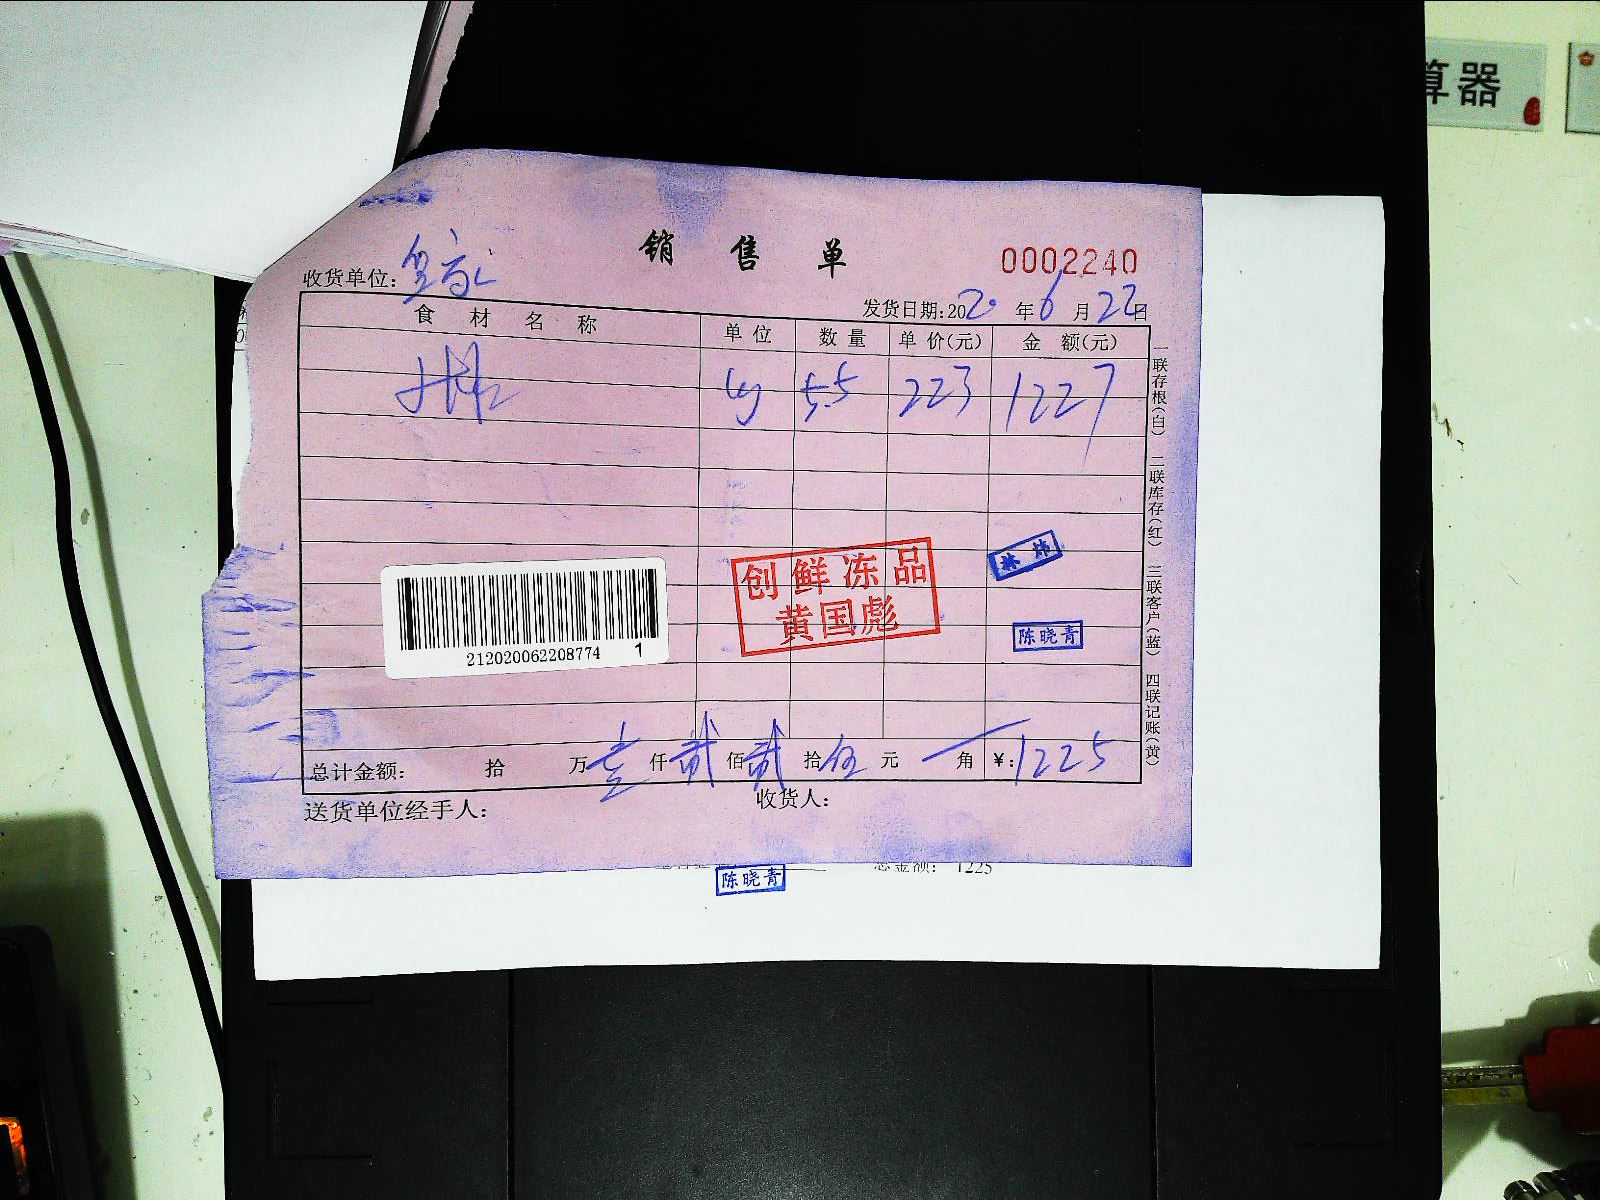 算器
销售单
0002240
收货单位:
发货日期:2020年6月22日
食材名称 单位 数量 单价(元) 金额(元)
5.5 223 1227
一联存根(白) 二联库存(红) 三联客户(蓝) 四联记账(黄)
创鲜冻品
黄国彪
林炜
陈晓青
212020062208774 1
总计金额: 拾 万壹仟贰佰贰拾伍元 角 ¥:1225
送货单位经手人: 收货人:
总金额: 1225
陈晓青